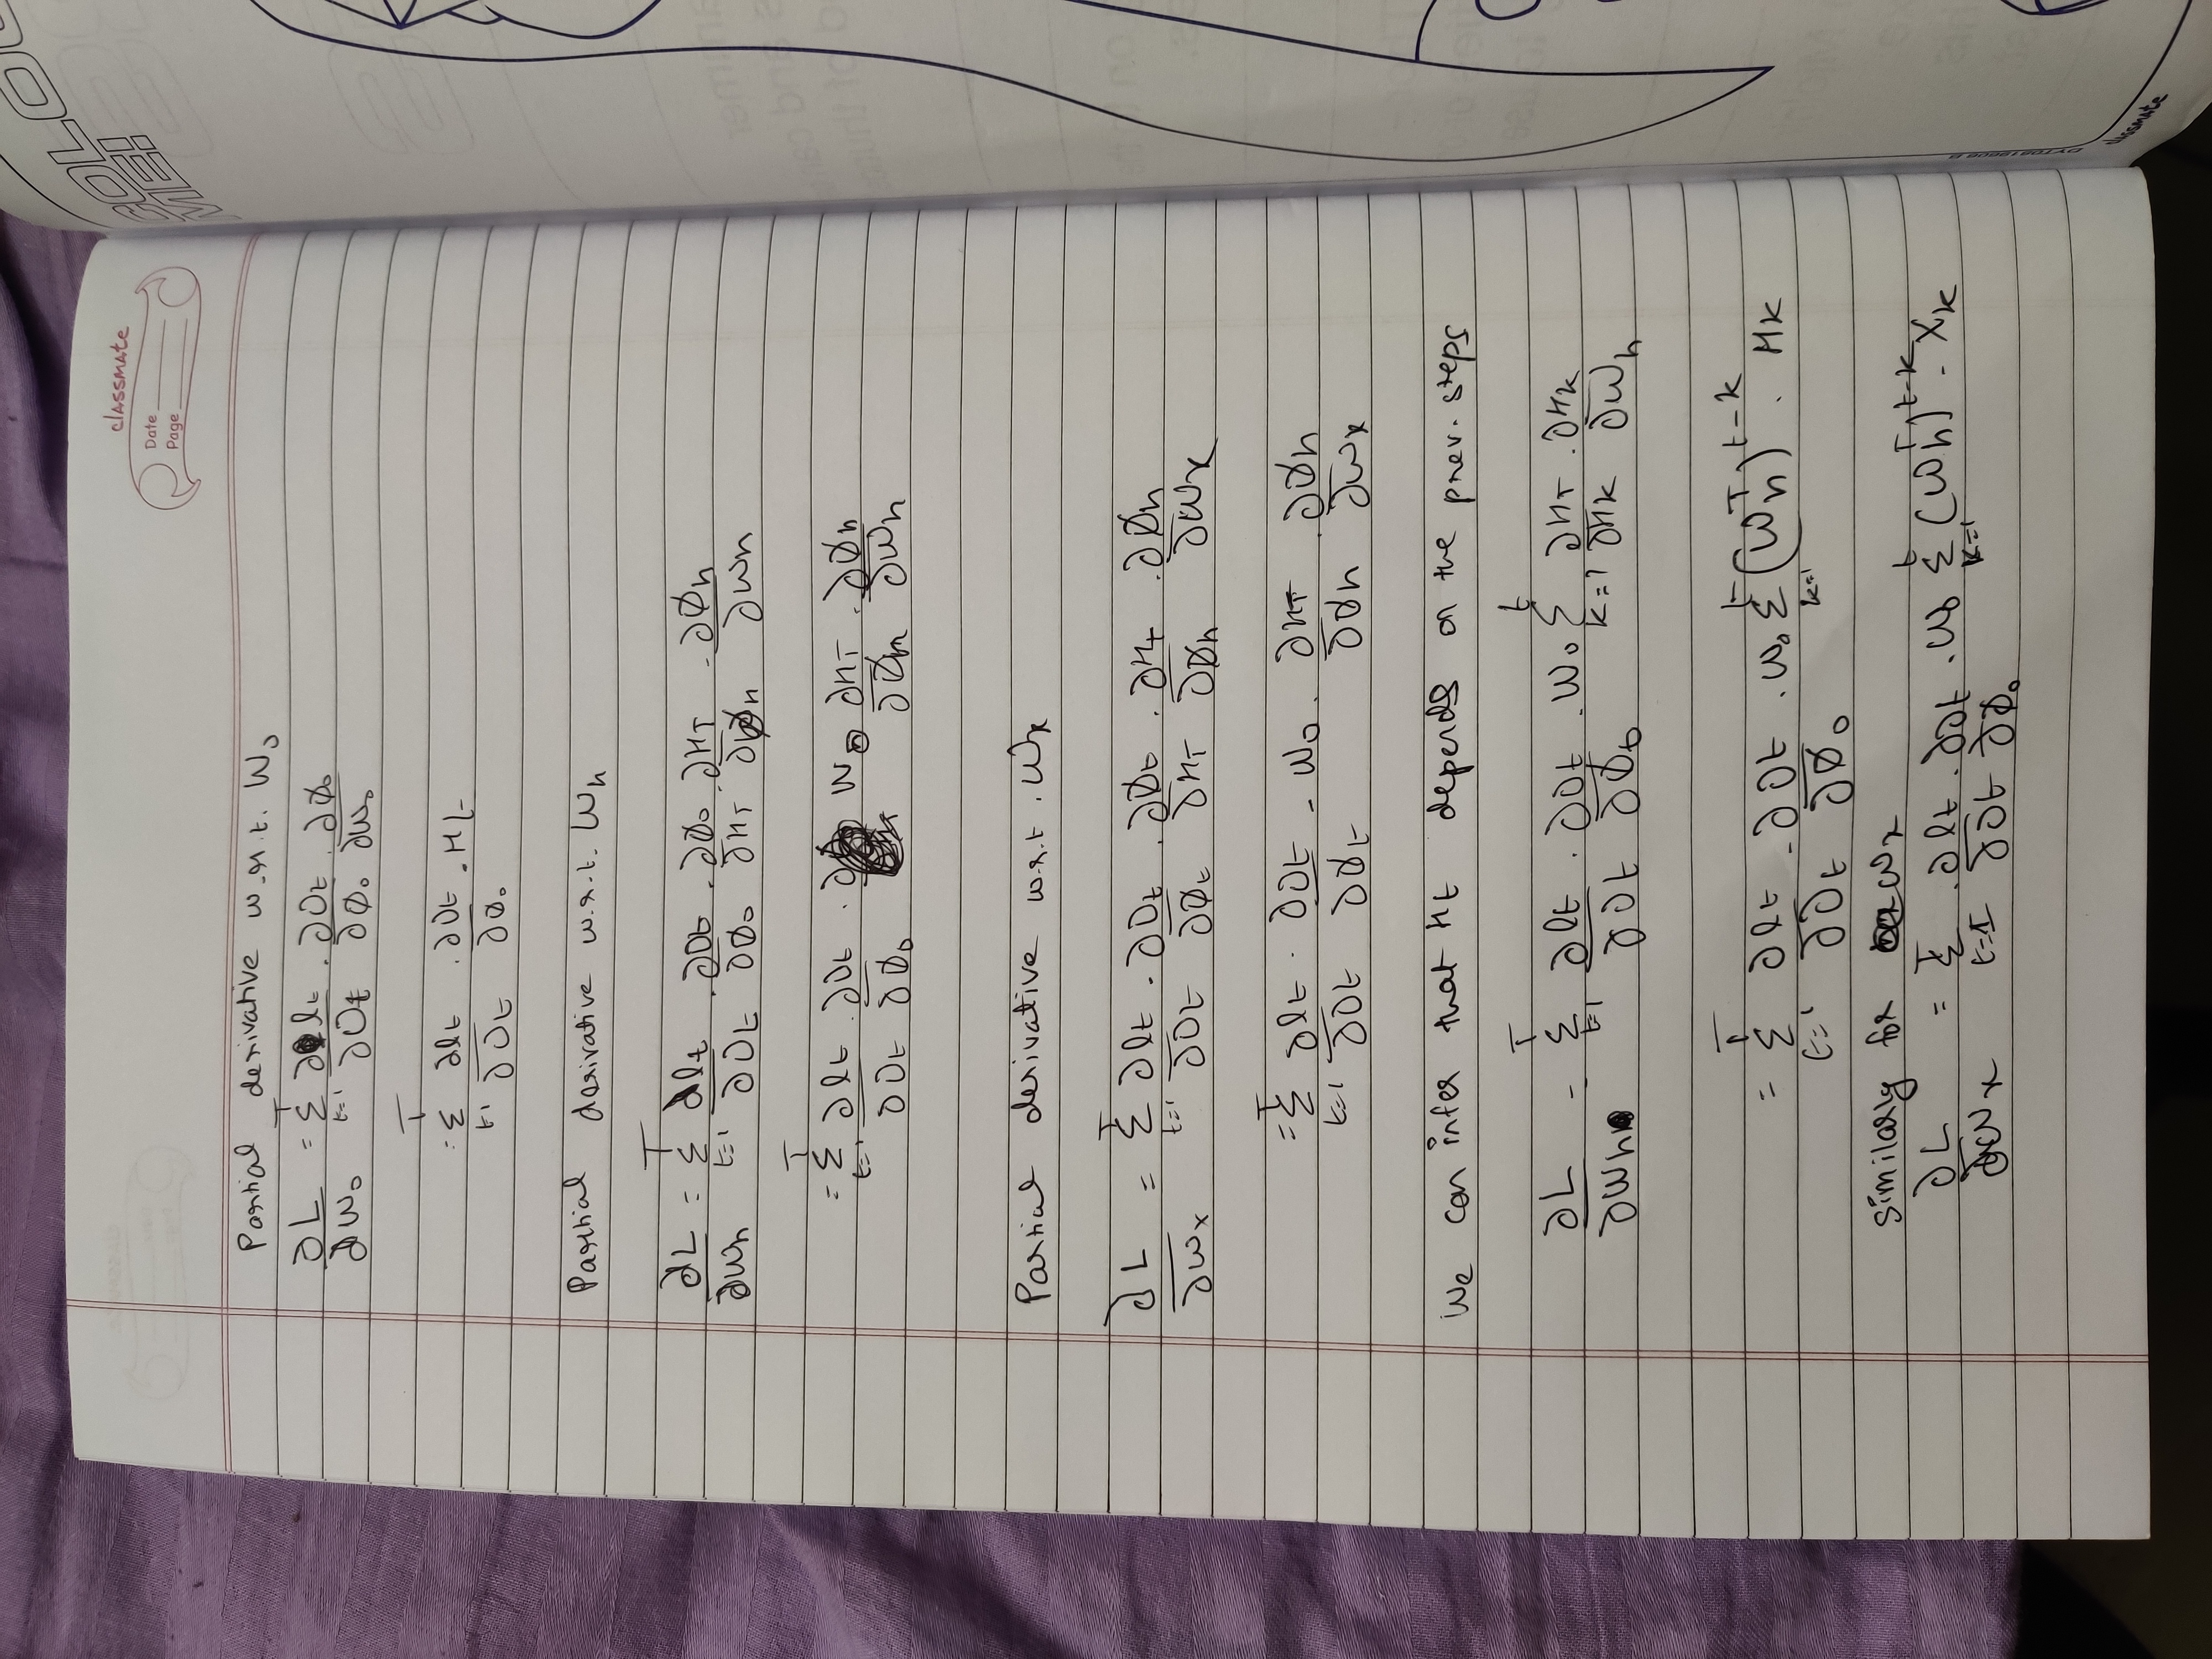 classmate
Date
Page
COLOU
ME!
Partial derivative w.r.t. W₀
∂L/∂W₀ = Σ_{t=1}^{T} ∂lt/∂Ot · ∂Ot/∂Ø₀ · ∂Ø₀/∂W₀
= Σ_{t=1}^{T} ∂lt/∂Ot · ∂Ot/∂Ø₀ · Ht
Partial derivative w.r.t. Wh
∂L/∂Wh = Σ_{t=1}^{T} ∂lt/∂Ot · ∂Ot/∂Ø₀ · ∂Ø₀/∂HT · ∂HT/∂Øh · ∂Øh/∂Wh
= Σ_{t=1}^{T} ∂lt/∂Ot · ∂Ot/∂Ø₀ · W₀ ∂HT/∂Øh · ∂Øh/∂Wh
Partial derivative w.r.t. Wx
∂L/∂Wx = Σ_{t=1}^{T} ∂lt/∂Ot · ∂Ot/∂Øt · ∂Øt/∂HT · ∂Ht/∂Øh · ∂Øh/∂Wx
= Σ_{t=1}^{T} ∂lt/∂Ot · ∂Ot/∂Øt · W₀ · ∂HT/∂Øh · ∂Øh/∂Wx
We can infer that Ht depends on the prev. steps
∂L/∂Wh = Σ_{t=1}^{T} ∂lt/∂Ot · ∂Ot/∂Ø₀ · W₀ Σ_{k=1}^{t} ∂HT/∂Hk · ∂Hk/∂Wh
= Σ_{t=1}^{T} ∂lt/∂Ot · ∂Ot/∂Ø₀ · W₀ Σ_{k=1}^{t} (Wh^T)^{t-k} · Hk
Similarly for Wx
∂L/∂Wx = Σ_{t=1}^{T} · ∂lt/∂Ot · ∂Ot/∂Ø₀ · W₀ Σ_{k=1}^{t} (Wh^T)^{t-k} · Xk
classmate